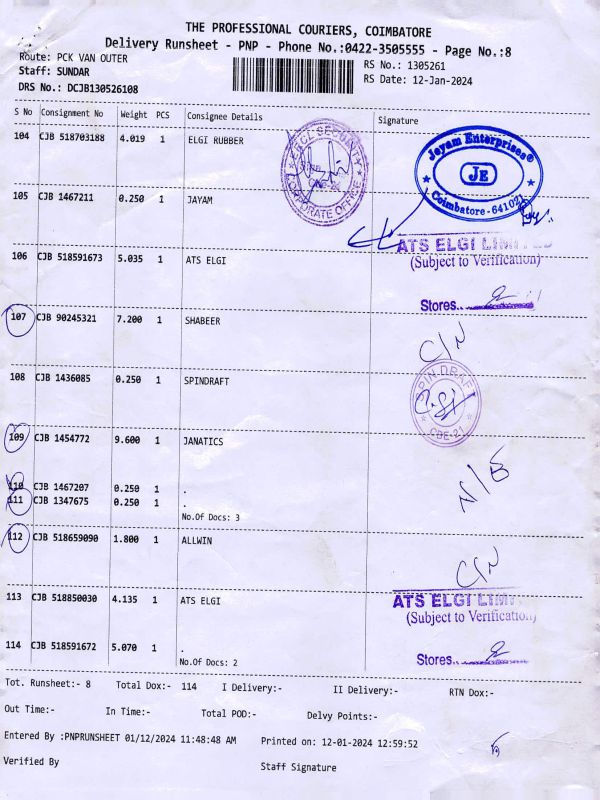 THE PROFESSIONAL COURIERS, COIMBATORE
Delivery Runsheet - PNP - Phone No.:0422-3505555 - Page No.:8
Route: PCK VAN OUTER
RS No.: 1305261
Staff: SUNDAR
RS Date: 12-Jan-2024
DRS No.: DCJB130526108
S No Consignment No Weight PCS Consignee Details Signature
104 CJB 518703188 4.019 1 ELGI RUBBER
CORPORATE OFFICE
Jeyam Enterprises®
JE
Coimbatore - 641021
105 CJB 1467211 0.250 1 JAYAM
106 CJB 518591673 5.035 1 ATS ELGI
ATS ELGI LIMITED
(Subject to Verification)
Stores..
107 CJB 90245321 7.200 1 SHABEER
C/N
108 CJB 1436085 0.250 1 SPINDRAFT
SPIN DRAFT
CBE-21
109 CJB 1454772 9.600 1 JANATICS
N/E
110 CJB 1467207 0.250 1 .
111 CJB 1347675 0.250 1 .
No.Of Docs: 3
112 CJB 518659090 1.800 1 ALLWIN
C/N
113 CJB 518850030 4.135 1 ATS ELGI
ATS ELGI LIM
(Subject to Verification)
114 CJB 518591672 5.070 1 .
Stores..
No.Of Docs: 2
Tot. Runsheet:- 8 Total Dox:- 114 I Delivery:- II Delivery:- RTN Dox:-
Out Time:- In Time:- Total POD:- Delvy Points:-
Entered By :PNPRUNSHEET 01/12/2024 11:48:48 AM Printed on: 12-01-2024 12:59:52
Verified By Staff Signature